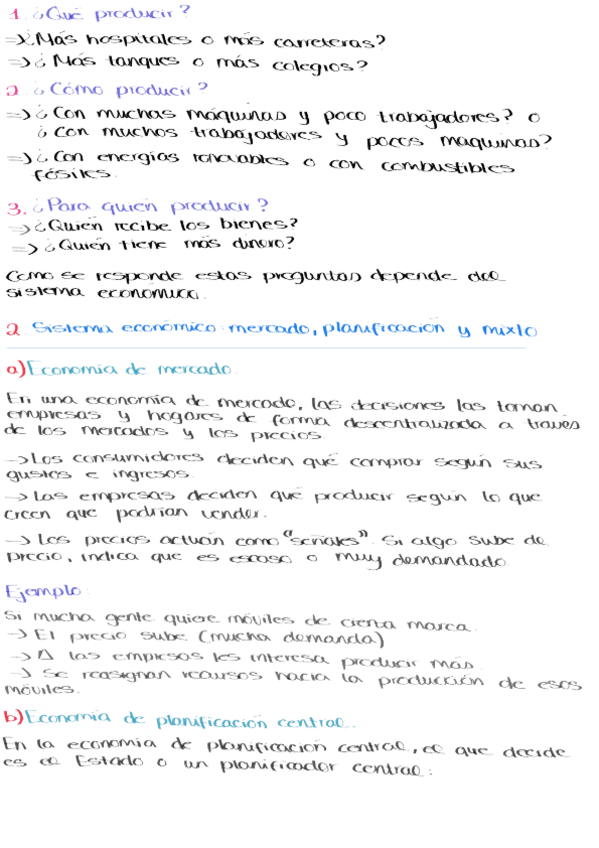 1. ¿Qué producir?
=> ¿Más hospitales o más carreteras?
=> ¿Más tanques o más colegios?
2 ¿Cómo producir?
=> ¿Con muchas máquinas y poco trabajadores? o
¿con muchos trabajadores y pocos maquinas?
=> ¿Con energías renovables o con combustibles
fósiles.
3. ¿Para quién producir?
=> ¿Quién recibe los bienes?
=> ¿Quién tiene más dinero?
Como se responde estas preguntas depende del
sistema económico.
2 Sistema económico: mercado, planificación y mixto
a) Economía de mercado.
En una economía de mercado, las decisiones las toman
empresas y hogares de forma descentralizada a través
de los mercados y los precios.
-> Los consumidores deciden qué comprar según sus
gustos e ingresos.
-> Las empresas deciden qué producir según lo que
creen que podrían vender.
-> Los precios actúan como "señales". Si algo sube de
precio, indica que es escaso o muy demandado
Ejemplo:
Si mucha gente quiere móviles de cierta marca.
-> El precio sube (mucha demanda)
-> A las empresas les interesa producir más.
-> Se reasignan recursos hacia la producción de esos
móviles.
b) Economía de planificación central.
En la economía de planificación central, el que decide
es el Estado o un planificador central: